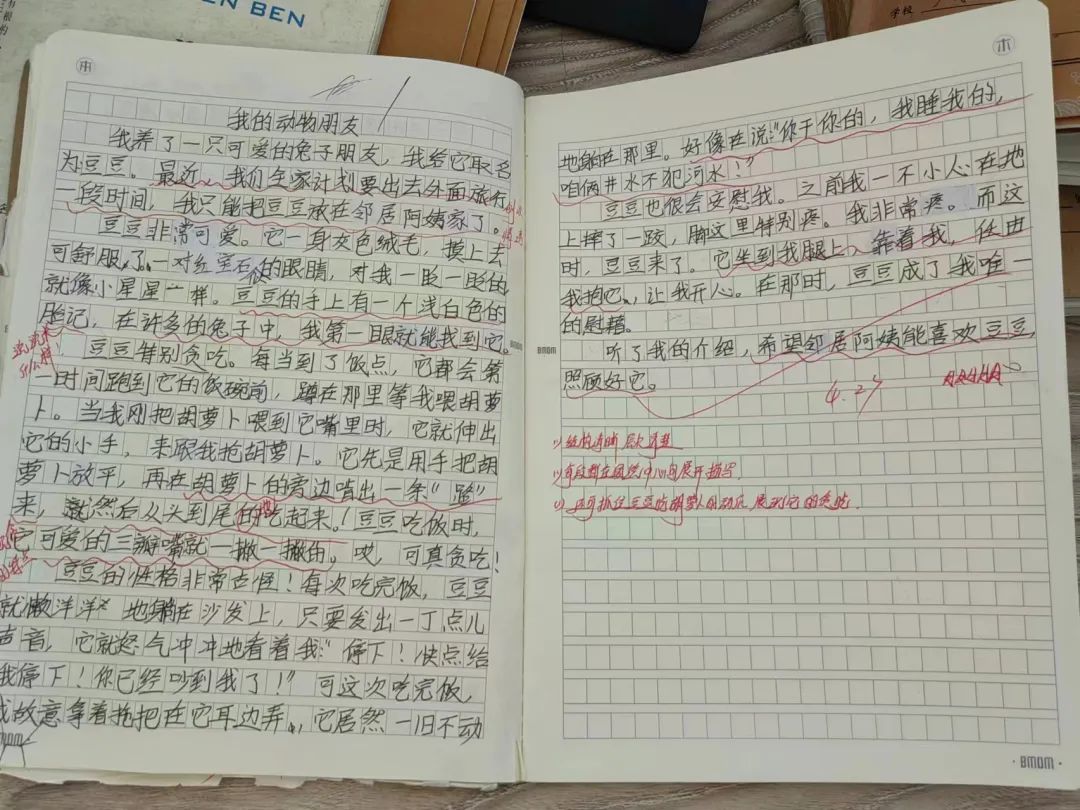 EN BEN
学校
本
我的动物朋友
我养了一只可爱的兔子朋友，我给它取名
为豆豆。最近，我们全家计划要出去外面旅行
一段时间，我只能把豆豆放在邻居阿姨家了。
豆豆非常可爱。它一身灰色绒毛，摸上去
可舒服了。一对红宝石般的眼睛，对我一眨一眨的，
就像小星星一样。豆豆的手上有一个浅白色的
胎记，在许多的兔子中，我第一眼就能找到它。
豆豆特别贪吃。每当到了饭点，它都会第
一时间跑到它的饭碗前，蹲在那里等我喂胡萝
卜。当我刚把胡萝卜喂到它嘴里时，它就伸出
它的小手，来跟我抢胡萝卜。它先是用手把胡
萝卜放平，再在胡萝卜的旁边啃出一条“路”
来，然后从头到尾的吃起来。！豆豆吃饭时，
它可爱的三瓣嘴就一撇一撇的。哎，可真贪吃！
豆豆的性格非常古怪！每次吃完饭，豆豆
就懒洋洋地躺在沙发上，只要发出一丁点儿
声音，它就怒气冲冲地看着我：“停下！快点给
我停下！你已经吵到我了！”可这次吃完饭，
我故意拿着拖把在它耳边弄，它居然一旧不动
BMDM
本
地躺在那里。好像在说：“你干你的，我睡我的，
咱俩井水不犯河水！”
豆豆也很会安慰我。之前我一不小心在地
上摔了一跤，脚这里特别疼。我非常疼。而这
时，豆豆来了。它坐到我腿上，靠着我，任由
我抱它，让我开心。在那时，豆豆成了我唯一
的慰藉。
BMDM
听了我的介绍，希望邻居阿姨能喜欢豆豆，
照顾好它。
4.27
结构清晰 层次
BMDM